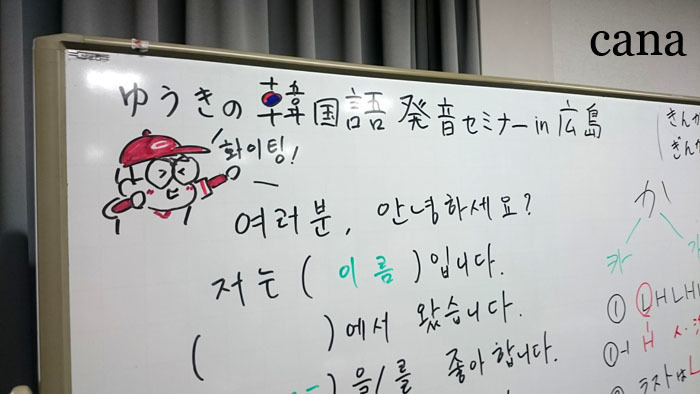 cana
ゆうきの韓国語発音セミナーin広島
화이팅!
여러분, 안녕하세요?
저는 ( 이름 )입니다.
( )에서 왔습니다.
)을/를 좋아합니다.
か
카
① LHLH
①-1 H
ラストはL